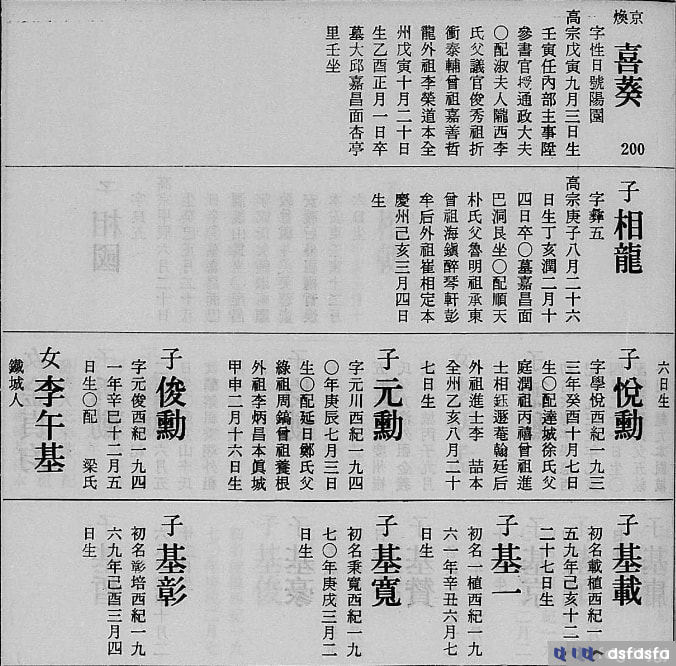 京煥
喜葵
200
字性日號陽園
高宗戊寅九月三日生
壬寅任內部主事陞
參書官授通政大夫
〇配淑夫人隴西李
氏父議官俊秀祖折
衝泰輔曾祖嘉善哲
龍外祖李榮道本全
州戊寅十月二十日
生乙酉正月一日卒
墓大邱嘉昌面杏亭
里壬坐
子 相龍
字彝五
高宗庚子八月二十六
日生丁亥潤二月十
四日卒〇墓嘉昌面
巴洞艮坐〇配順天
朴氏父魯明祖承東
曾祖海鎭醉琴軒彭
年后外祖崔相定本
慶州己亥三月四日
生
六日生
子 悅勳
字學悅西紀一九三
三年癸酉十月七日
生〇配達城徐氏父
庭潤祖丙禧曾祖進
士相鈺遯菴翰廷后
外祖進士李 喆本
全州乙亥八月二十
七日生
子 元勳
字元川西紀一九四
〇年庚辰七月三日
生〇配延日鄭氏父
綠祖周鎬曾祖養根
外祖李炳昌本眞城
甲申二月十六日生
子 俊勳
字元俊西紀一九四
一年辛巳十二月五
日生〇配 梁氏
女 李午基
鐵城人
子 基載
初名載植西紀一九
五九年己亥十二
二十七日生
子 基一
初名一植西紀一九
六一年辛丑六月七
日生
子 基寬
初名秉寬西紀一九
七〇年庚戌三月二
日生
子 基彰
初名彰培西紀一九
六九年己酉三月四
日生
dsfdsfa